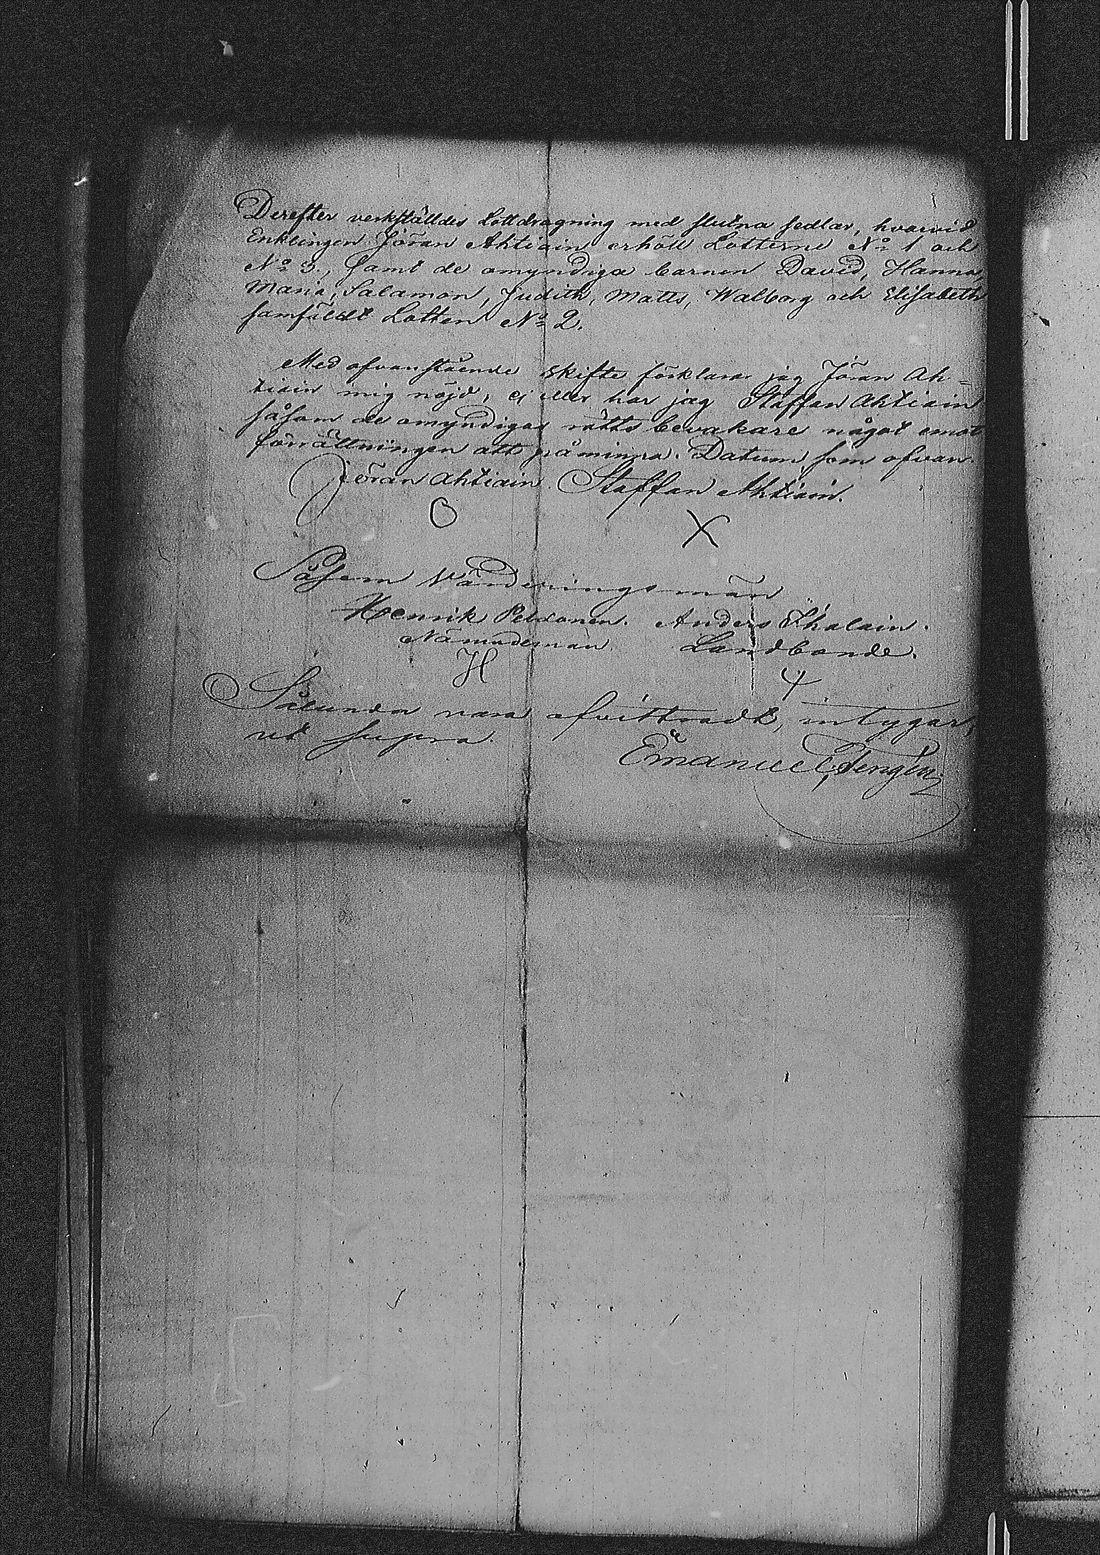 Derefter verkställdes Lottdragning med slutna sedlar, hvarvid
Enklingen Jöran Ahtiain erhöll Lotterne No 1 och
No 3., Samt de omyndiga barnen David, Hanna,
Maria, Salamon, Judith, Matts, Walborg och Elisabeth
samfäldt Lotten No 2.
Med ofvanstående skifte förklarar jag Jöran Ah-
tiain mig nöjd, ej eller har jag Staffan Ahtiain
såsom de omyndigas rätts bevakare något emot
förrättningen att påminna. Datum som ofvan.
Jöran Ahtiain Staffan Ahtiain.
O X
Såsom Värderingsmän
Henrik Pelkonen. Anders
Nämndeman Landbonde.
H
Sålunda vara afvittradt, intygar,
ut supra.
Emanuel